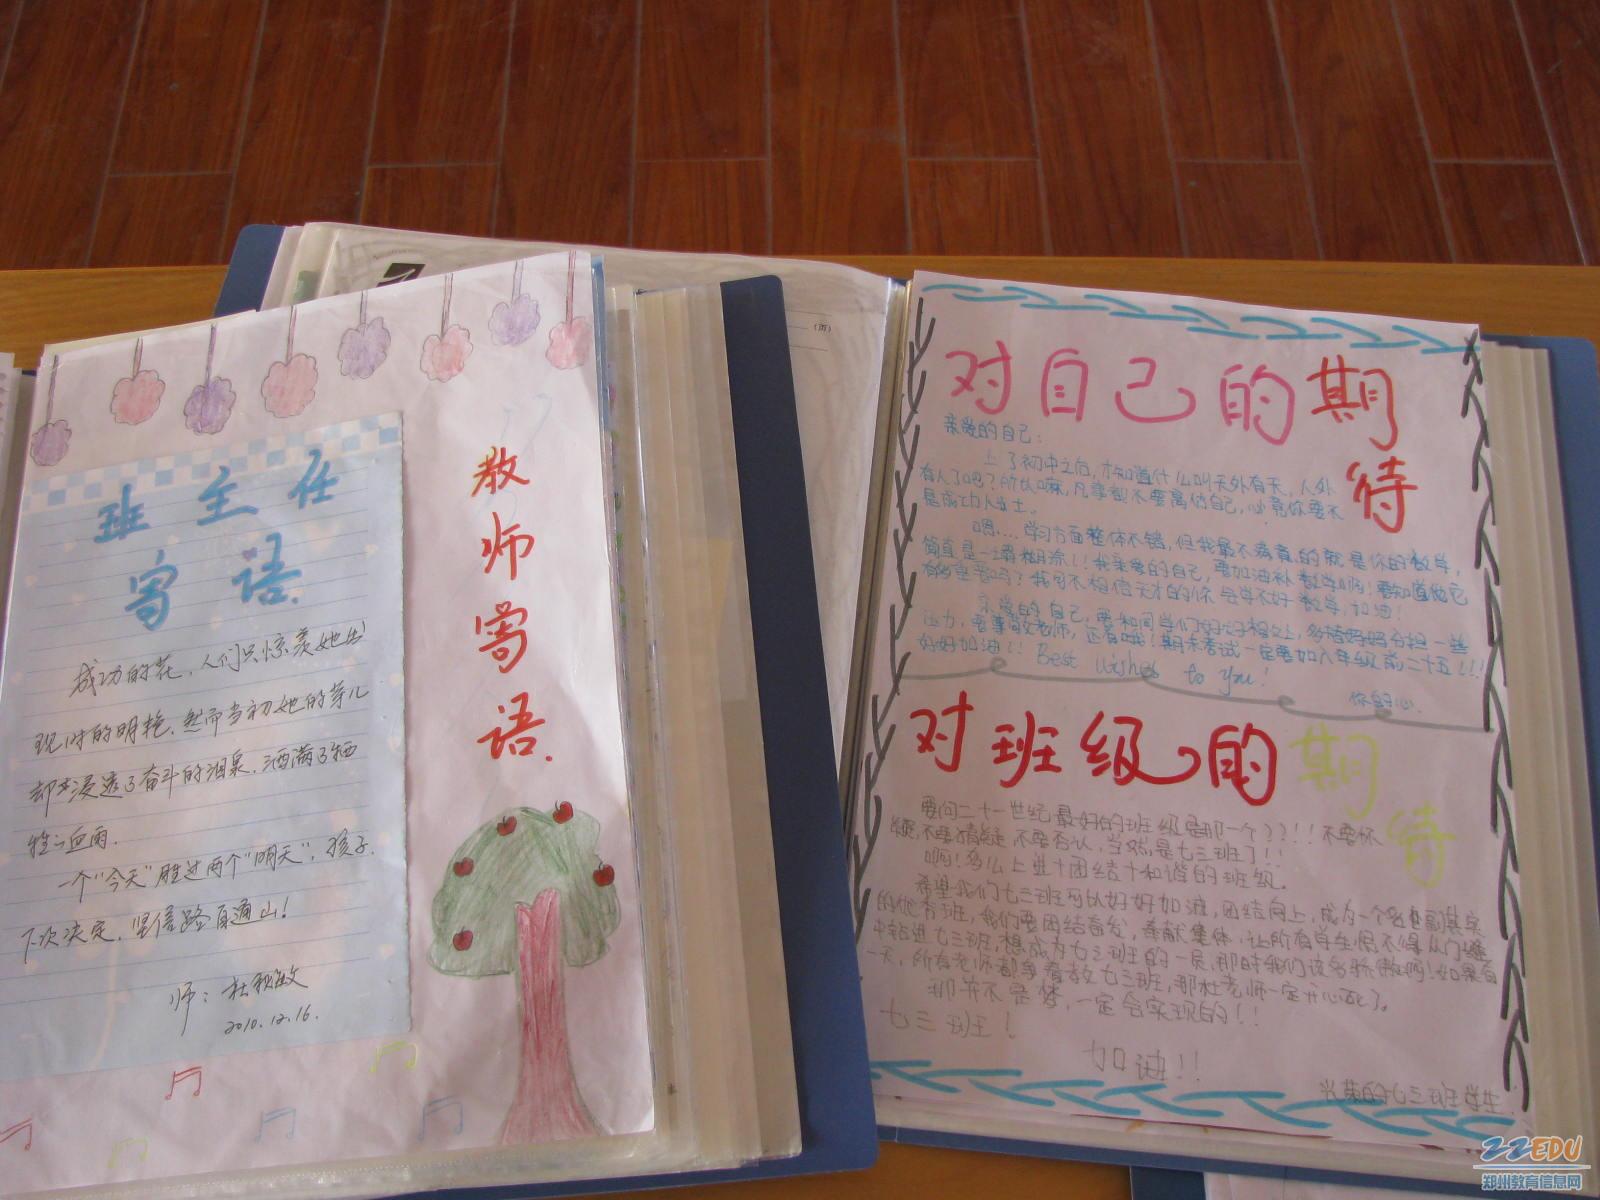 班主任
寄语.
成功的花，人们只惊羡她出
现时的明艳.然而当初她的芽儿
却浸透了奋斗的泪泉.洒满了牺
牲的血雨.
一个"今天"胜过两个"明天"，孩子.
下次决定，坚信路通山！
师：杜秋敏
2010.12.16.
教
师
寄
语.
(页)
对自己的期
待
亲爱的自己：
上了初中之后，才知道什么叫天外有天，人外
有人了吧？所以嘛，凡事都不要高估自己，必竟你要不
是成功人士.
嗯…学习方面整体不错，但我最不满意的就是你的数学，
简直是一塌糊涂！！我亲爱的自己，要加油补数学啊！要知道
我可不相信天才的你会学不好数学，加油！
亲爱的自己，要和同学们好好相处，多替妈妈分担一些
压力，要尊敬老师，还有哦！期末考试一定要加入年级前二十五！！！
好好加油！！Best wishes to you！
你的心.
对班级的期
待
要问二十一世纪最好的班级是那一个？？！！不要怀
疑，不要猜疑不要否认，当然是七三班了！！
啊！多么上进十团结十和谐的班级.
希望我们七三班可以好好加油，团结向上，成为一个名副其实
的优秀班，我们要团结奋发，奉献集体，让所有学生恨不得从门缝
中钻进七三班，想成为七三班的一员，那时我们该多骄傲啊！如果有
一天，所有老师都争着教七三班，那杜老师一定开心死了。
那并不是梦，一定会实现的！！
七三班！
加油！！
光荣的七三班学生.
ZZEDU
郑州教育信息网